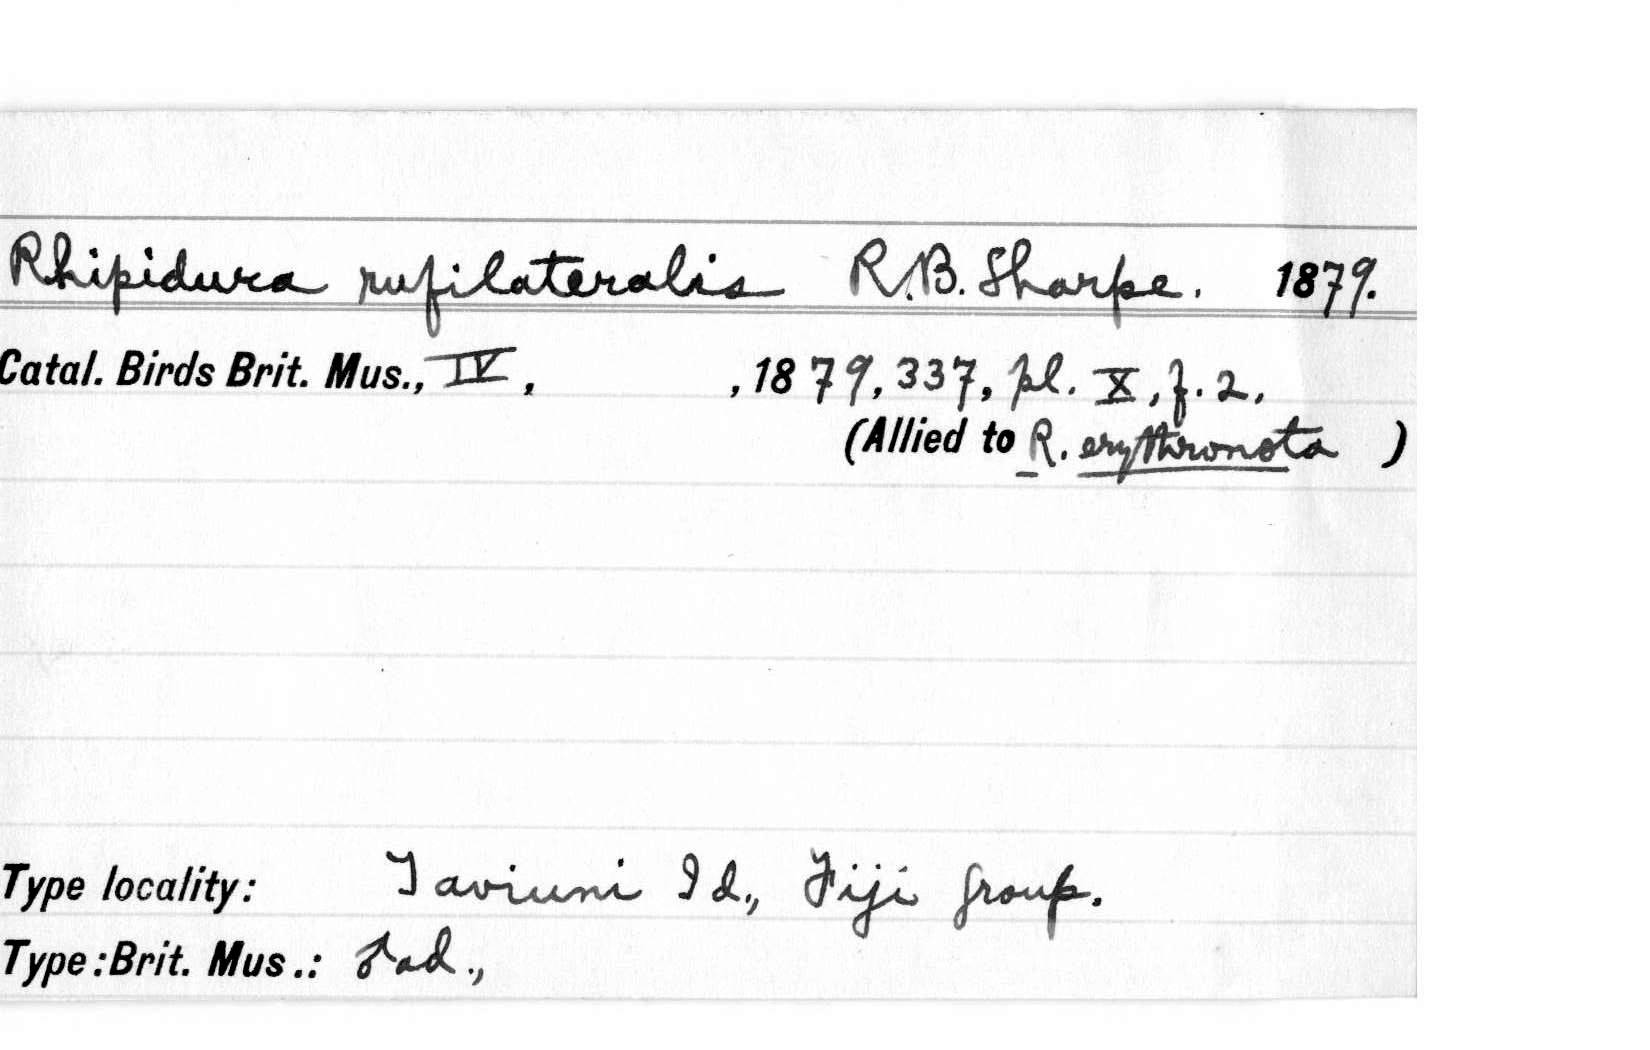 Rhipidura rufilateralis R.B. Sharpe. 1879.
Catal. Birds Brit. Mus., IV, , 1879, 337, pl. X, f. 2,
(Allied to R. erythronota )
Type locality: Taviuni Id., Fiji group.
Type: Brit. Mus.: ♂ ad.,